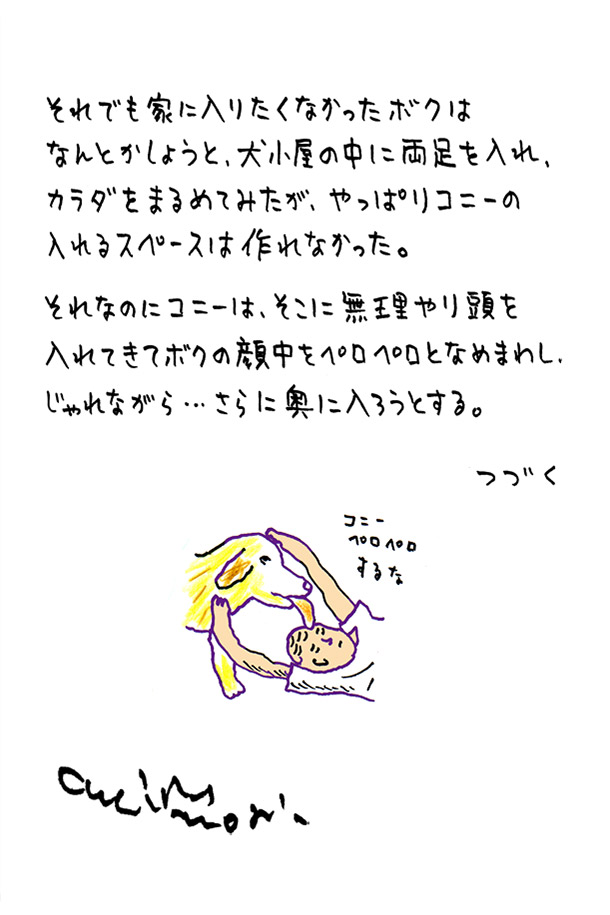 それでも家に入りたくなかったボクは
なんとかしようと、犬小屋の中に両足を入れ、
カラダをまるめてみたが、やっぱりコニーの
入れるスペースは作れなかった。
それなのにコニーは、そこに無理やり頭を
入れてきてボクの顔中をペロペロとなめまわし、
じゃれながら…さらに奥に入ろうとする。
つづく
コニー
ペロペロ
するな